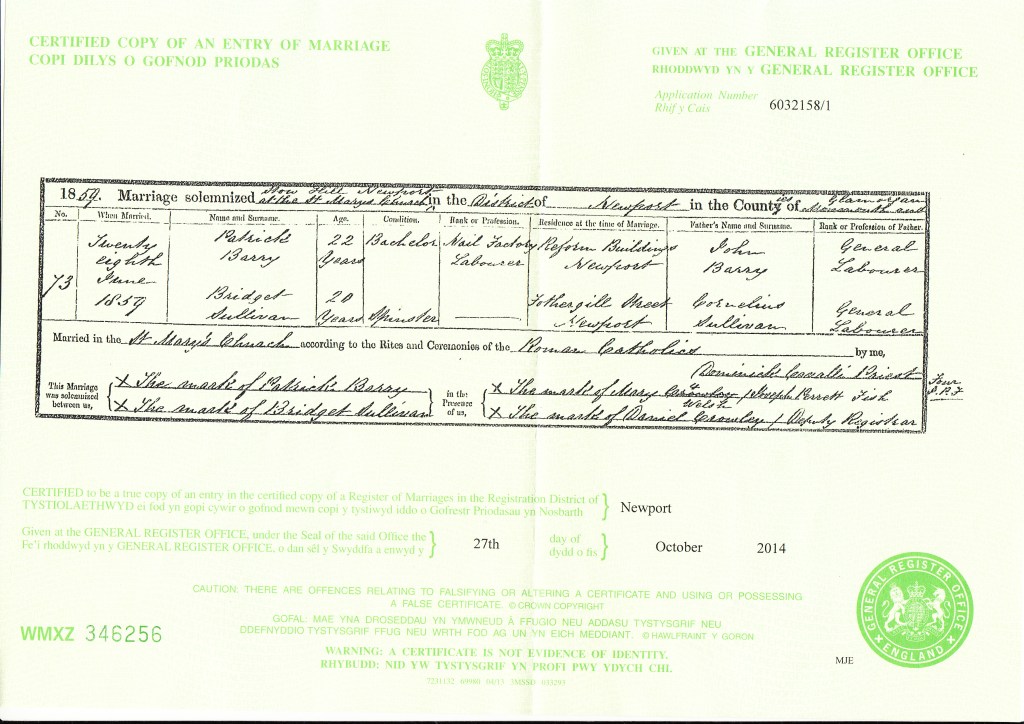 CERTIFIED COPY OF AN ENTRY OF MARRIAGE
COPI DILYS O GOFNOD PRIODAS
GIVEN AT THE GENERAL REGISTER OFFICE
RHODDWYD YN Y GENERAL REGISTER OFFICE
Application Number
Rhif y Cais
6032158/1
Stow Hill Newport Glamorgan
1859. Marriage solemnized at the St Marys Church in the District of Newport in the Counties of Monmouth and
No. When Married. Name and Surname. Age. Condition. Rank or Profession. Residence at the time of Marriage. Father's Name and Surname. Rank or Profession of Father.
Twenty Patrick 22 Bachelor Nail Factory Reform Buildings John General
eighth Barry Years Labourer Newport Barry Labourer
73 June
1859 Bridget 20 Fothergill Street Cornelius General
Sullivan Years Spinster Newport Sullivan Labourer
Married in the St Mary's Church according to the Rites and Ceremonies of the Roman Catholics by me,
Dominick Priest
This Marriage was solemnized between us,
X The mark of Patrick Barry
X The mark of Bridget Sullivan
in the Presence of us,
X The mark of Mary Welsh Joseph Perrett
X The mark of Daniel Crowley Deputy Registrar
Four
CERTIFIED to be a true copy of an entry in the certified copy of a Register of Marriages in the Registration District of
TYSTIOLAETHWYD ei fod yn gopi cywir o gofnod mewn copi y tystiwyd iddo o Gofrestr Priodasau yn Nosbarth
Newport
Given at the GENERAL REGISTER OFFICE, under the Seal of the said Office the
Fe'i rhoddwyd yn y GENERAL REGISTER OFFICE, o dan sêl y Swyddfa a enwyd y
27th
day of
dydd o fis
October 2014
CAUTION: THERE ARE OFFENCES RELATING TO FALSIFYING OR ALTERING A CERTIFICATE AND USING OR POSSESSING
A FALSE CERTIFICATE. © CROWN COPYRIGHT
GOFAL: MAE YNA DROSEDDAU YN YMWNEUD Â FFUGIO NEU ADDASU TYSTYSGRIF NEU
DDEFNYDDIO TYSTYSGRIF FFUG NEU WRTH FOD AG UN YN EICH MEDDIANT. © HAWLFRAINT Y GORON
WARNING: A CERTIFICATE IS NOT EVIDENCE OF IDENTITY.
RHYBUDD: NID YW TYSTYSGRIF YN PROFI PWY YDYCH CHI.
WMXZ 346256
MJE
GENERAL REGISTER OFFICE
ENGLAND